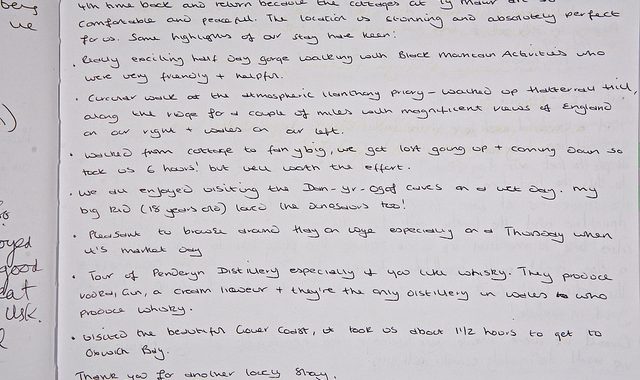 being
we
4th time back and return because the cottages at Ty Mawr are so
comfortable and peaceful. The location is stunning and absolutely perfect
for us. Some highlights of our stay have been:
· Really exciling half day gorge walking with Black Mountain Activities who
were very friendly + helpful.
· Circular walk at the atmospheric Llanthony priory - walked up Hatterrall Hill,
along the ridge for a couple of miles with magnificent views of England
on our right + wales on our left.
· Walked from cottage to fan y big, we got lost going up + coming down so
took us 6 hours! but well worth the effort.
· We all enjoyed visiting the Dan-yr-Ogof caves on a wet day. my
big kid (18 years old) loved the dinosaurs too!
· Pleasant to browse around Hay on Wye especially on a Thursday when
it's market day
· Tour of Penderyn Distillery especially if you like whisky. They produce
vodka, Gin, a cream liqueur + they're the only distillery in wales who
produce whisky.
· Visited the beautiful Gower Coast, it took us about 1 1/2 hours to get to
Oxwich Bay.
Thank you for another lovely stay.
good
Usk.